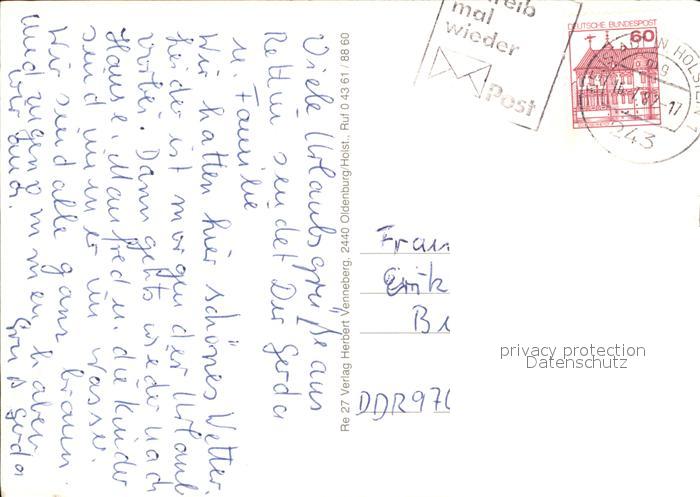 Viele Urlaubsgrüße aus
Rettin sendet Dir Gerda
u. Familie
Wir hatten hier schönes Wetter.
Leider ist morgen der Urlaub
vorbei. Dann gehts wieder nach
Hause. Manfred u. die Kinder
sind immer im Wasser.
Wir sind alle ganz braun
und
wir auch.
Gruß Gerda
Re 27 Verlag Herbert Venneberg, 2440 Oldenburg/Holst., Ruf 0 43 61 / 88 60
reib
mal
wieder
Post
DEUTSCHE BUNDESPOST
60
HOLSTEIN 1
243
Frau
Erik
DDR 97
privacy protection
Datenschutz